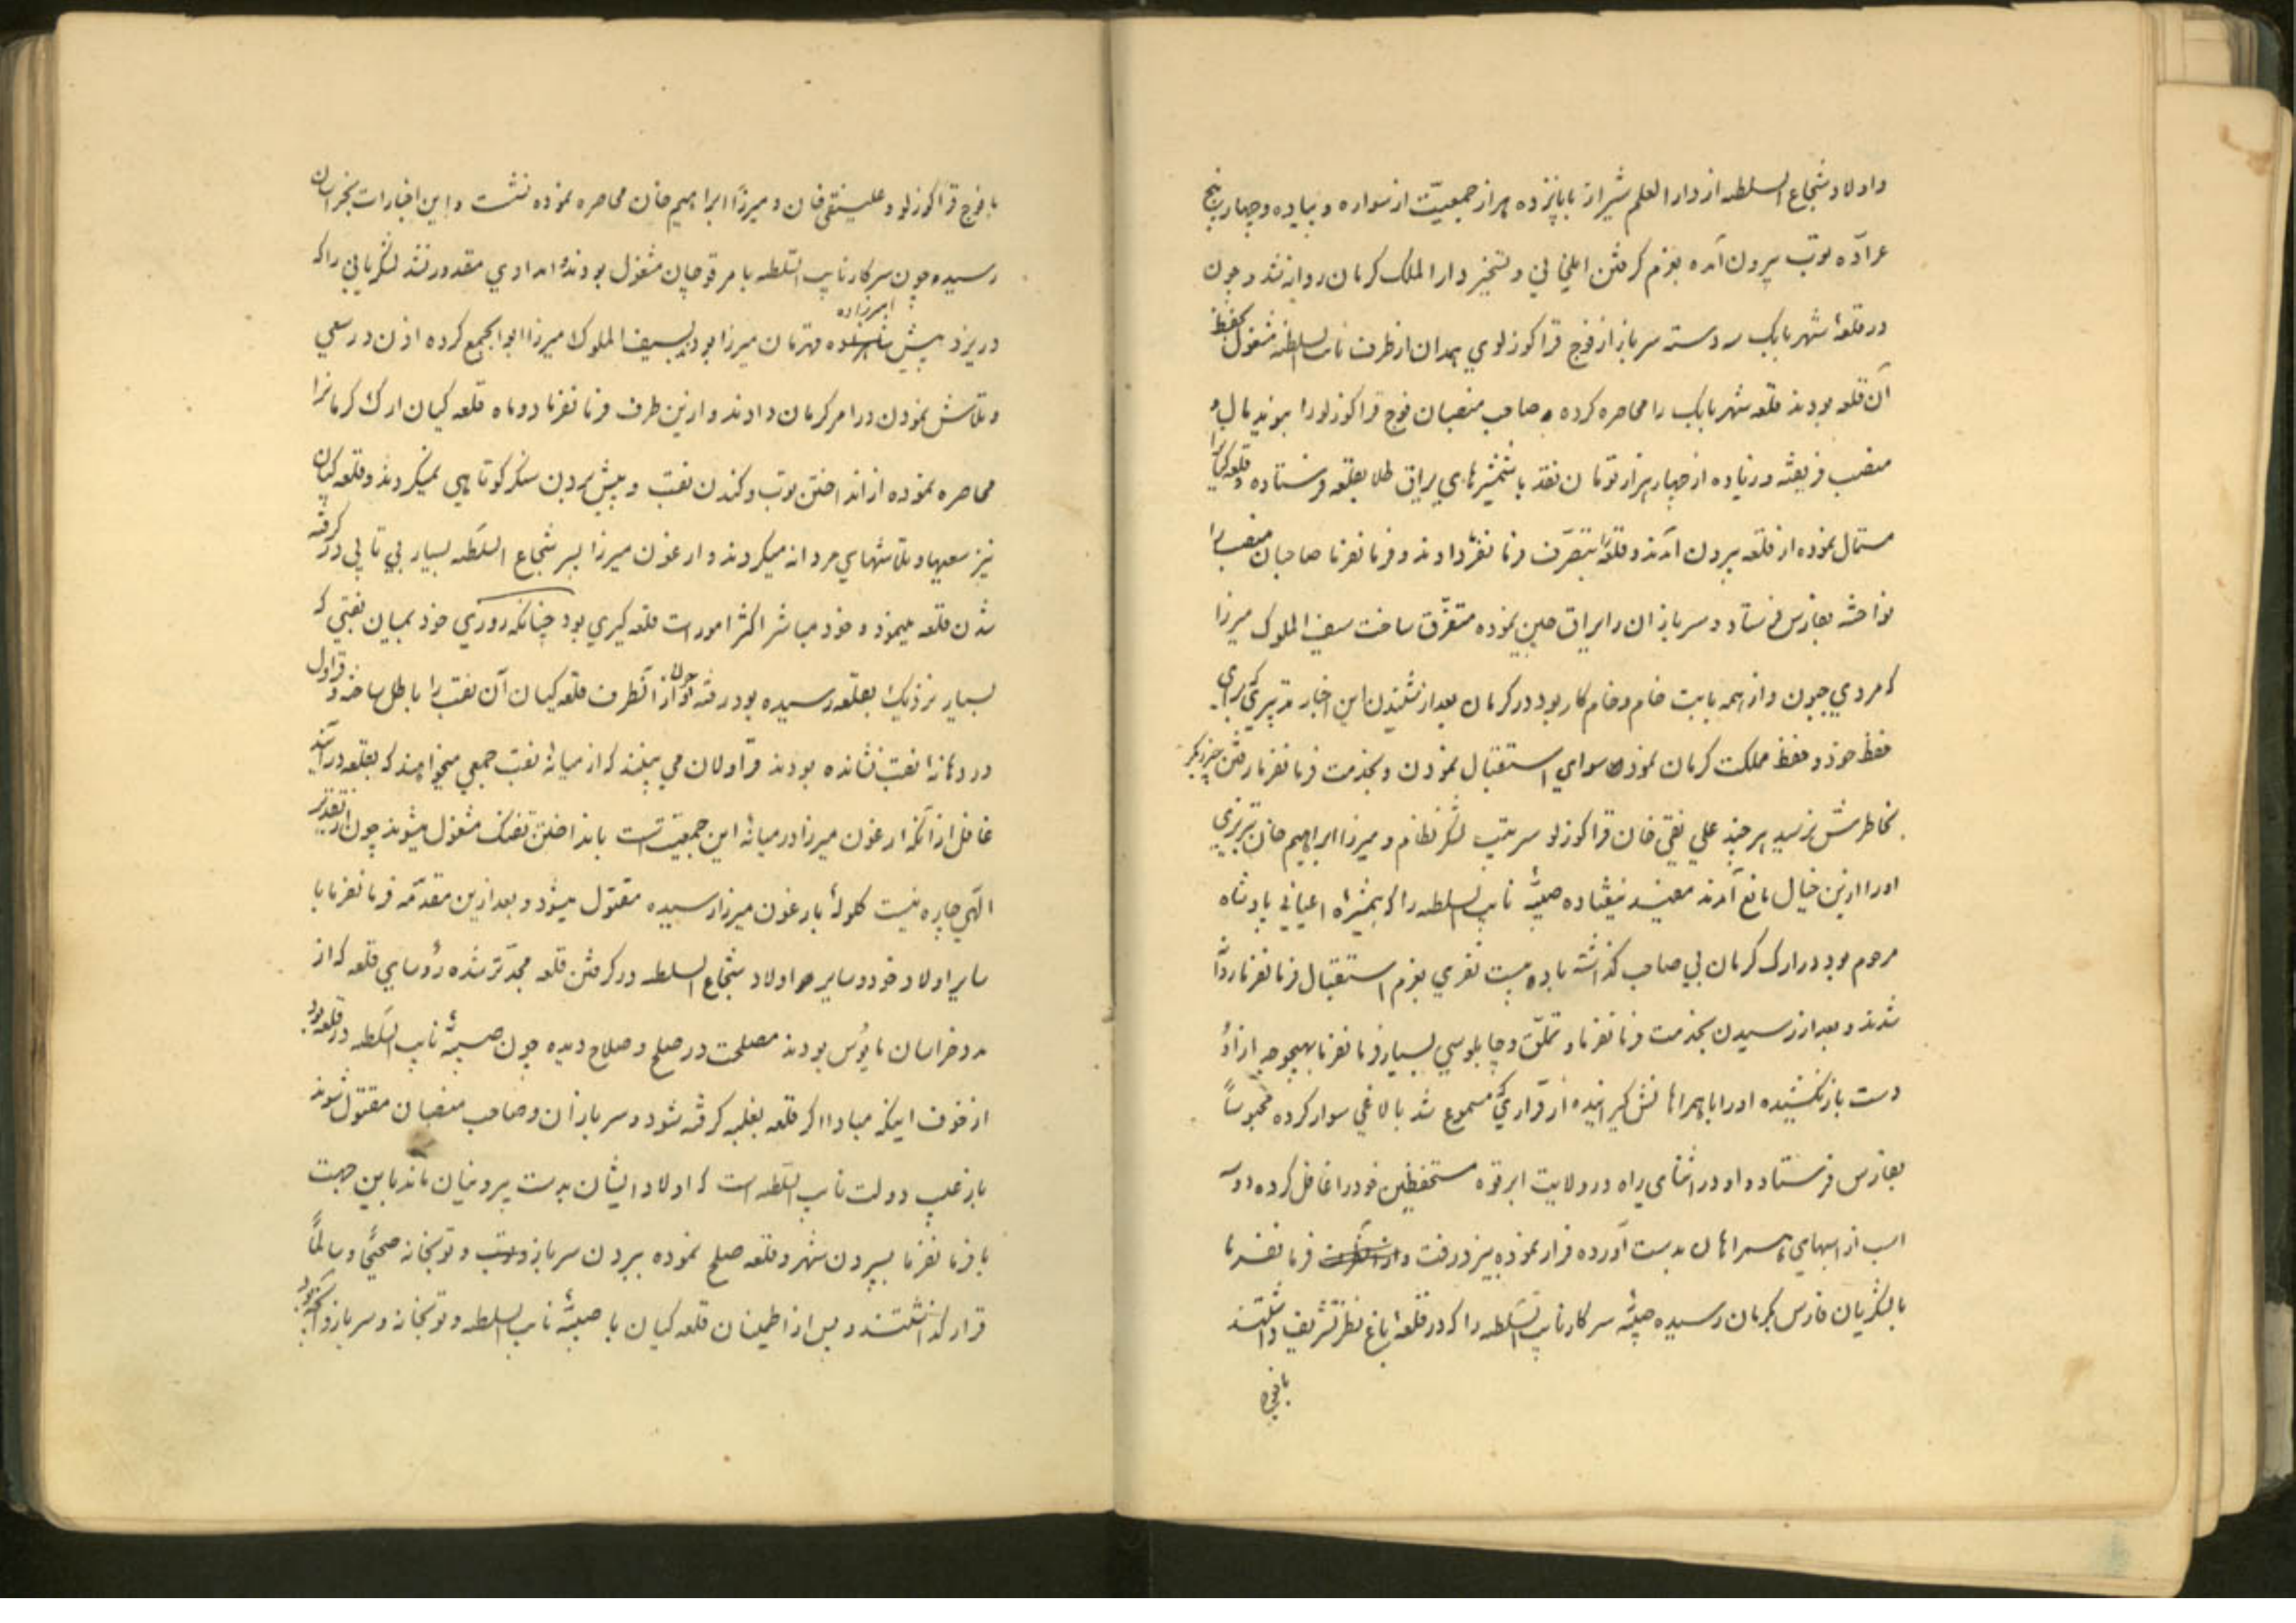 و اولاد شجاع السلطنه از دار العلم شیراز با پانزده هزار جمعیّت از سواره و پیاده و چهار پنج
عرّاده توپ بیرون آمده بعزم گرفتن ایلخانی و تسخیر دار الملک کرمان روانه شد و چون
در قلعهٔ شهر بابک سه دسته سرباز از فوج قراکوزلوی همدان از طرف نایب السلطنه مشغول بحفظ
آن قلعه بودند قلعه شهر بابک را محاصره کرده و صاحب منصبان فوج قراکوزلو را بنوید مال و
منصب فریفته و زیاده از چهار هزار تومان نقد با شمشیرهای یراق طلا بقلعه فرستاده و قلعه کیانرا
مستمال نموده از قلعه بیرون آمدند و قلعه را بتصرّف فرمانفرما دادند و فرمانفرما صاحبان منصب را
نواخته بفارس فرستاد و سربازان را یراق چین نموده متفرّق ساخت سیف الملوک میرزا
که مردی جبون و از همه بابت خام و خام کار بود در کرمان بعد از شنیدن این اخبار تدبیری که برای
حفظ خود و حفظ مملکت کرمان نمود سوای استقبال نمودن و بخدمت فرمانفرما رفتن چیز دیگر
بخاطرش نرسید هر چند علی نقی خان قراکوزلو سرتیپ لشکر نظام و میرزا ابراهیم خان تبریزی
او را ازین خیال مانع آمدند مفید نیفتاده صبیّهٔ نایب السلطنه را که همشیرهٔ اعیانی پادشاه
مرحوم بود در ارک کرمان بی صاحب گذاشته با ده بیست نفری بعزم استقبال فرمانفرما روانه
شدند و بعد از رسیدن بخدمت فرمانفرما و تملّق و چاپلوسی بسیار فرمانفرما بهیچوجه از او
دست باز نکشیده او را با همراهانش گیرانیده از قراری که مسموع شد بالاغی سوار کرده محبوساً
بفارس فرستاد و او در اثنای راه در ولایت ابرقوه مستحفظین خود را غافل کرده دو سه
اسب از اسبهای همراهان بدست آورده فرار نموده بیزد رفت و فرمانفرما
با لشکریان فارس بکرمان رسیده صبیّهٔ سرکار نایب السلطنه را که در قلعهٔ باغ نظر تشریف داشتند
با فوج
با فوج قراکوزلو و علینقی خان و میرزا ابراهیم خان محاصره نموده نشست و این اخبارات بخراسان
رسیده چون سرکار نایب السلطنه بامر قوچان مشغول بودند امدادی مقدور نشد لشکریانی را که
در یزد پیش امیرزاده قهرمان میرزا بودند بسیف الملوک میرزا ابوابجمع کرده اذن در سعی
و تلاش نمودن در امر کرمان دادند و ازین طرف فرمانفرما دو ماه قلعه کیان ارک کرمانرا
محاصره نموده از انداختن توپ و کندن نقب و پیش بردن سنگر کوتاهی نمیکردند و قلعه کیان
نیز سعیها و تلاشهای مردانه میکردند و ارغون میرزا پسر شجاع السلطنه بسیار بی تابی در گرفته
شدن قلعه مینمود و خود مباشر اکثر امورات قلعه گیری بود چنانکه روزی خود بمیان نقبی که
بسیار نزدیک بقلعه رسیده بود رفته بود چون از آنطرف قلعه کیان آن نقب را باطل ساخته و قراول
در دهانهٔ نقب نشانده بودند قراولان می بینند که از میانهٔ نقب جمعی میخواهند که بقلعه درآیند
غافل از آنکه ارغون میرزا در میانهٔ این جمعیّت است بانداختن تفنگ مشغول میشوند چون از تقدیر
الهی چاره نیست گلولهٔ بارغون میرزا رسیده مقتول میشود و بعد ازین مقدّمه فرمانفرما با
سایر اولاد خود و سایر اولاد شجاع السلطنه در گرفتن قلعه مجدّتر شده رؤسای قلعه که از
مدد خراسان مایوس بودند مصلحت در صلح و صلاح دیده چون صبیّهٔ نایب السلطنه در قلعه بود
از خوف اینکه مبادا اگر قلعه بغلبه گرفته شود و سربازان و صاحب منصبان مقتول شوند
باز عیب دولت نایب السلطنه است که اولاد ایشان بدست بیرونیان ماند باین جهت
با فرمانفرما بسپردن شهر و قلعه صلح نموده بیرون سرباز و توپخانه صحیحاً و سالماً
قرار گذاشتند و پس از اطمینان قلعه کیان با صبیّهٔ نایب السلطنه و توپخانه و سرباز و آنچه بود